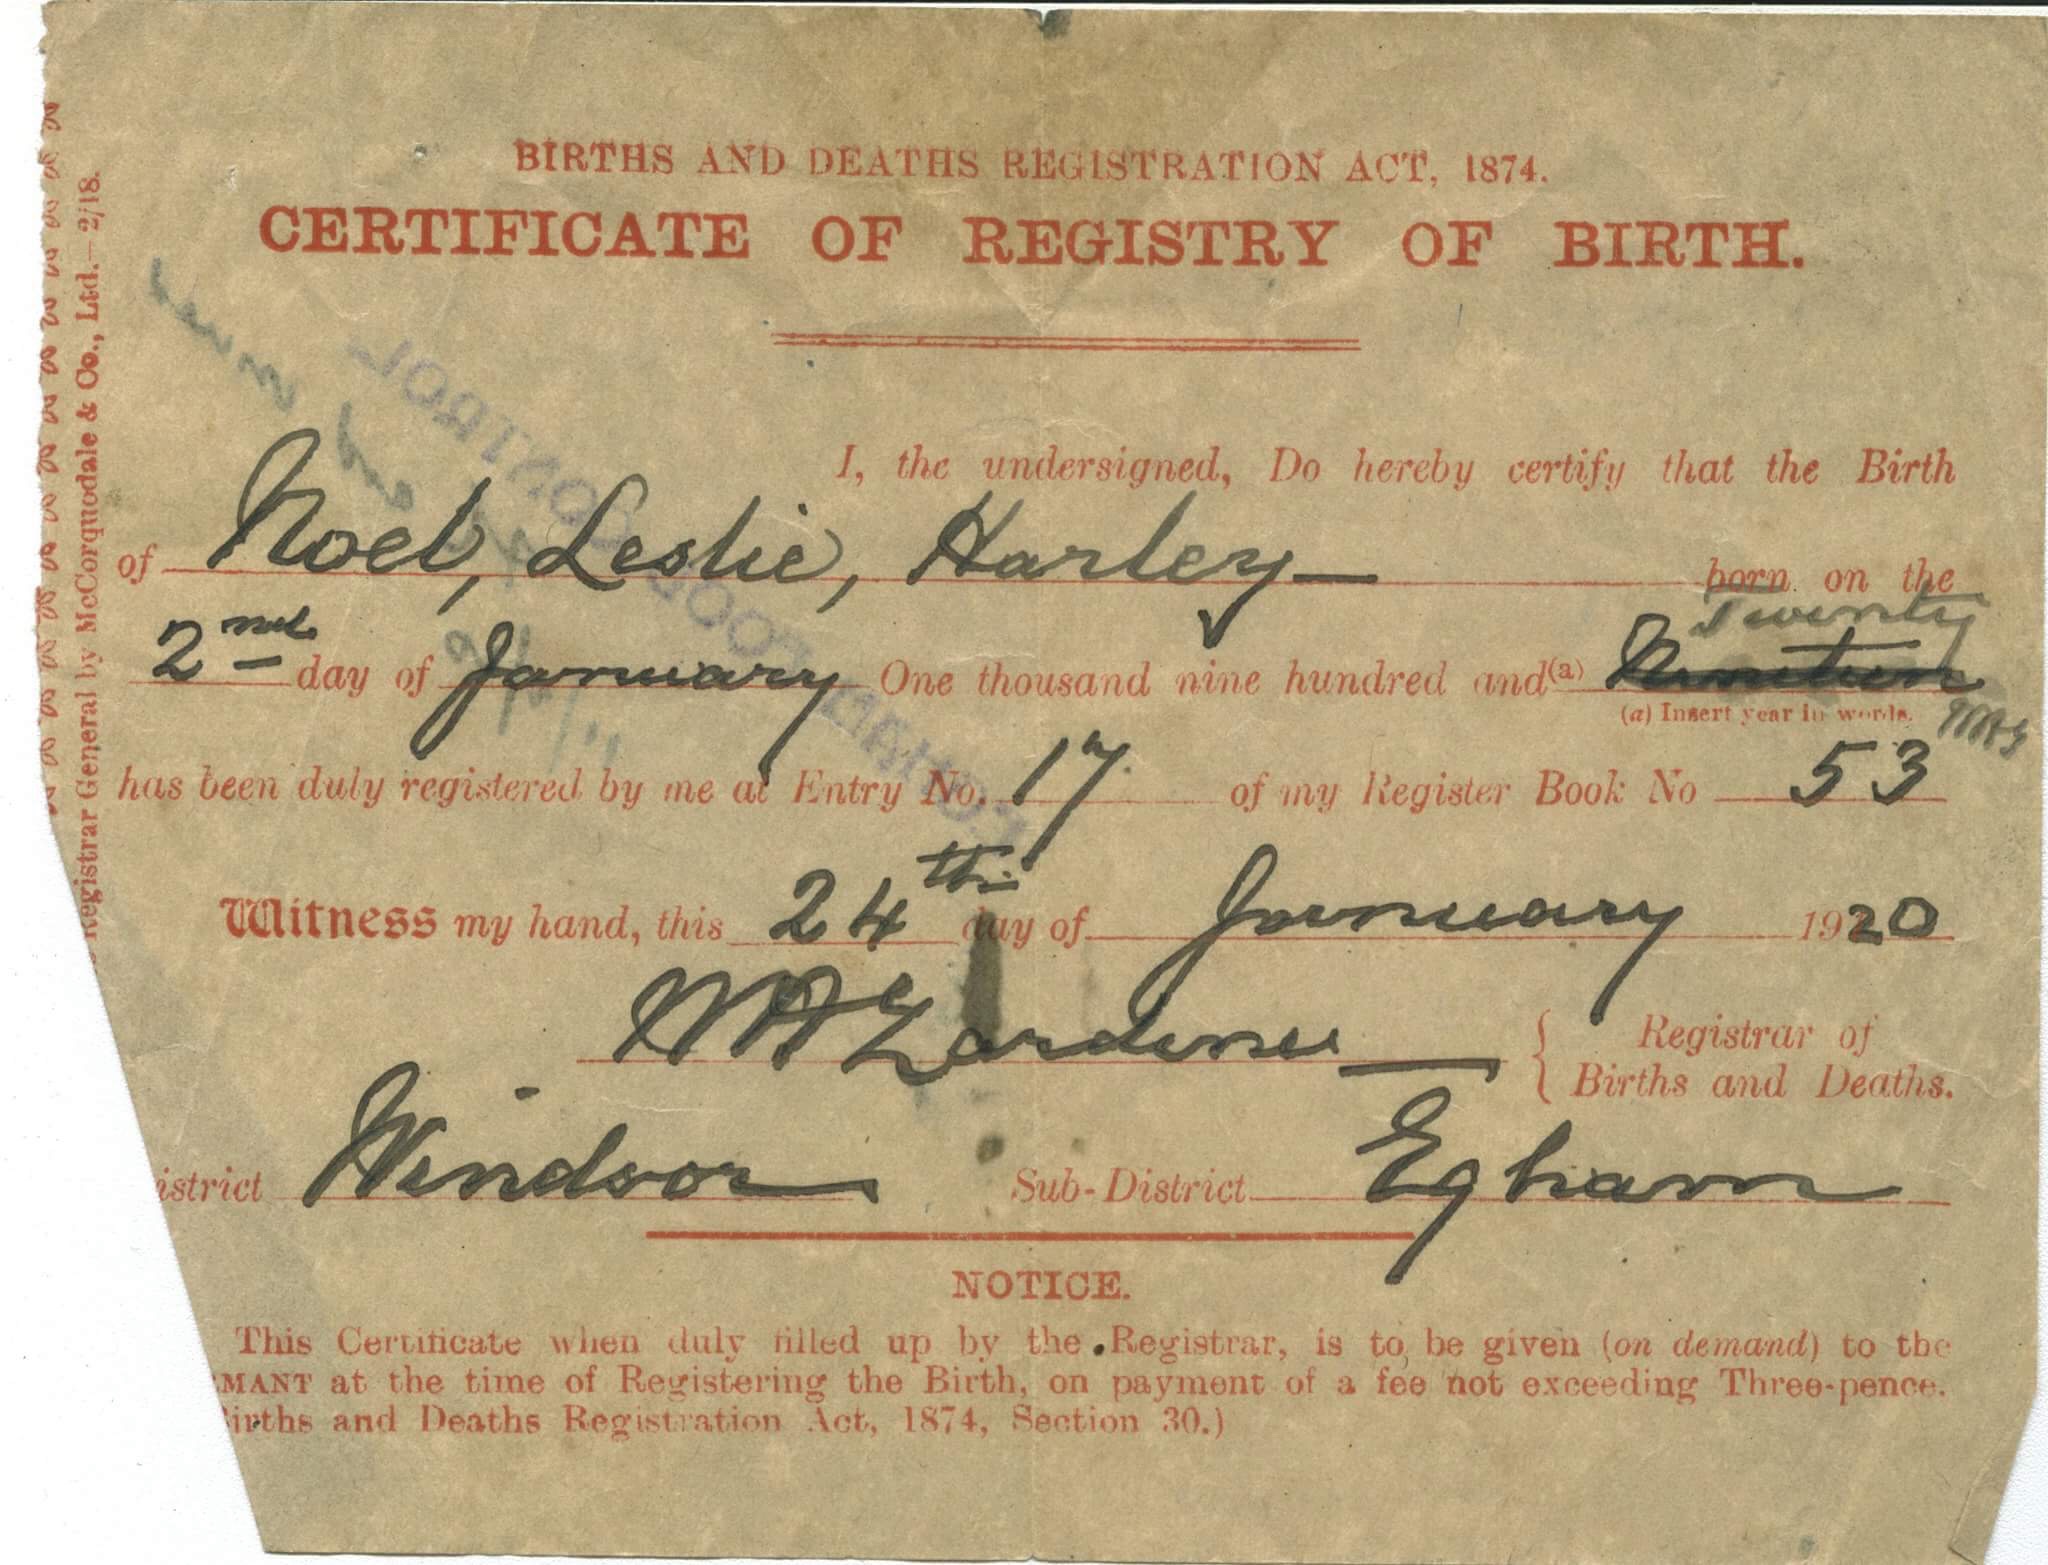 BIRTHS AND DEATHS REGISTRATION ACT, 1874.
CERTIFICATE OF REGISTRY OF BIRTH.
I, the undersigned, Do hereby certify that the Birth
of Noel, Leslie, Harley born on the
Twenty
2nd day of January One thousand nine hundred and (a) Nineteen
(a) Insert year in words.
has been duly registered by me at Entry No. 17 of my Register Book No 53
Witness my hand, this 24th day of January 1920
Registrar of
Births and Deaths.
istrict Windsor Sub-District Egham
NOTICE.
This Certificate when duly filled up by the Registrar, is to be given (on demand) to the
MANT at the time of Registering the Birth, on payment of a fee not exceeding Three-pence.
irths and Deaths Registration Act, 1874, Section 30.)
Registrar General by McCorquodale & Co., Ltd.—2/18.